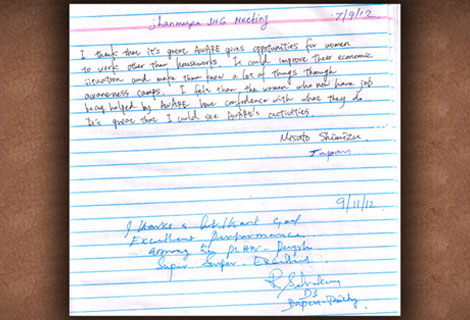 SHG Meeting
7/9/12
I think that it's great AWARE gives oppotunities for women
to work other than houseworks. It could improve their economic
situation and make them know a lot of things though
awareness camps. I felt that the women who now have job
being helped by AWARE have confidence with what they do.
It's great that I could see AWARE's activities.
Misato Shimizu
Japan
9/11/12
Excellent Performance
among
Super Super. Excellent
DS